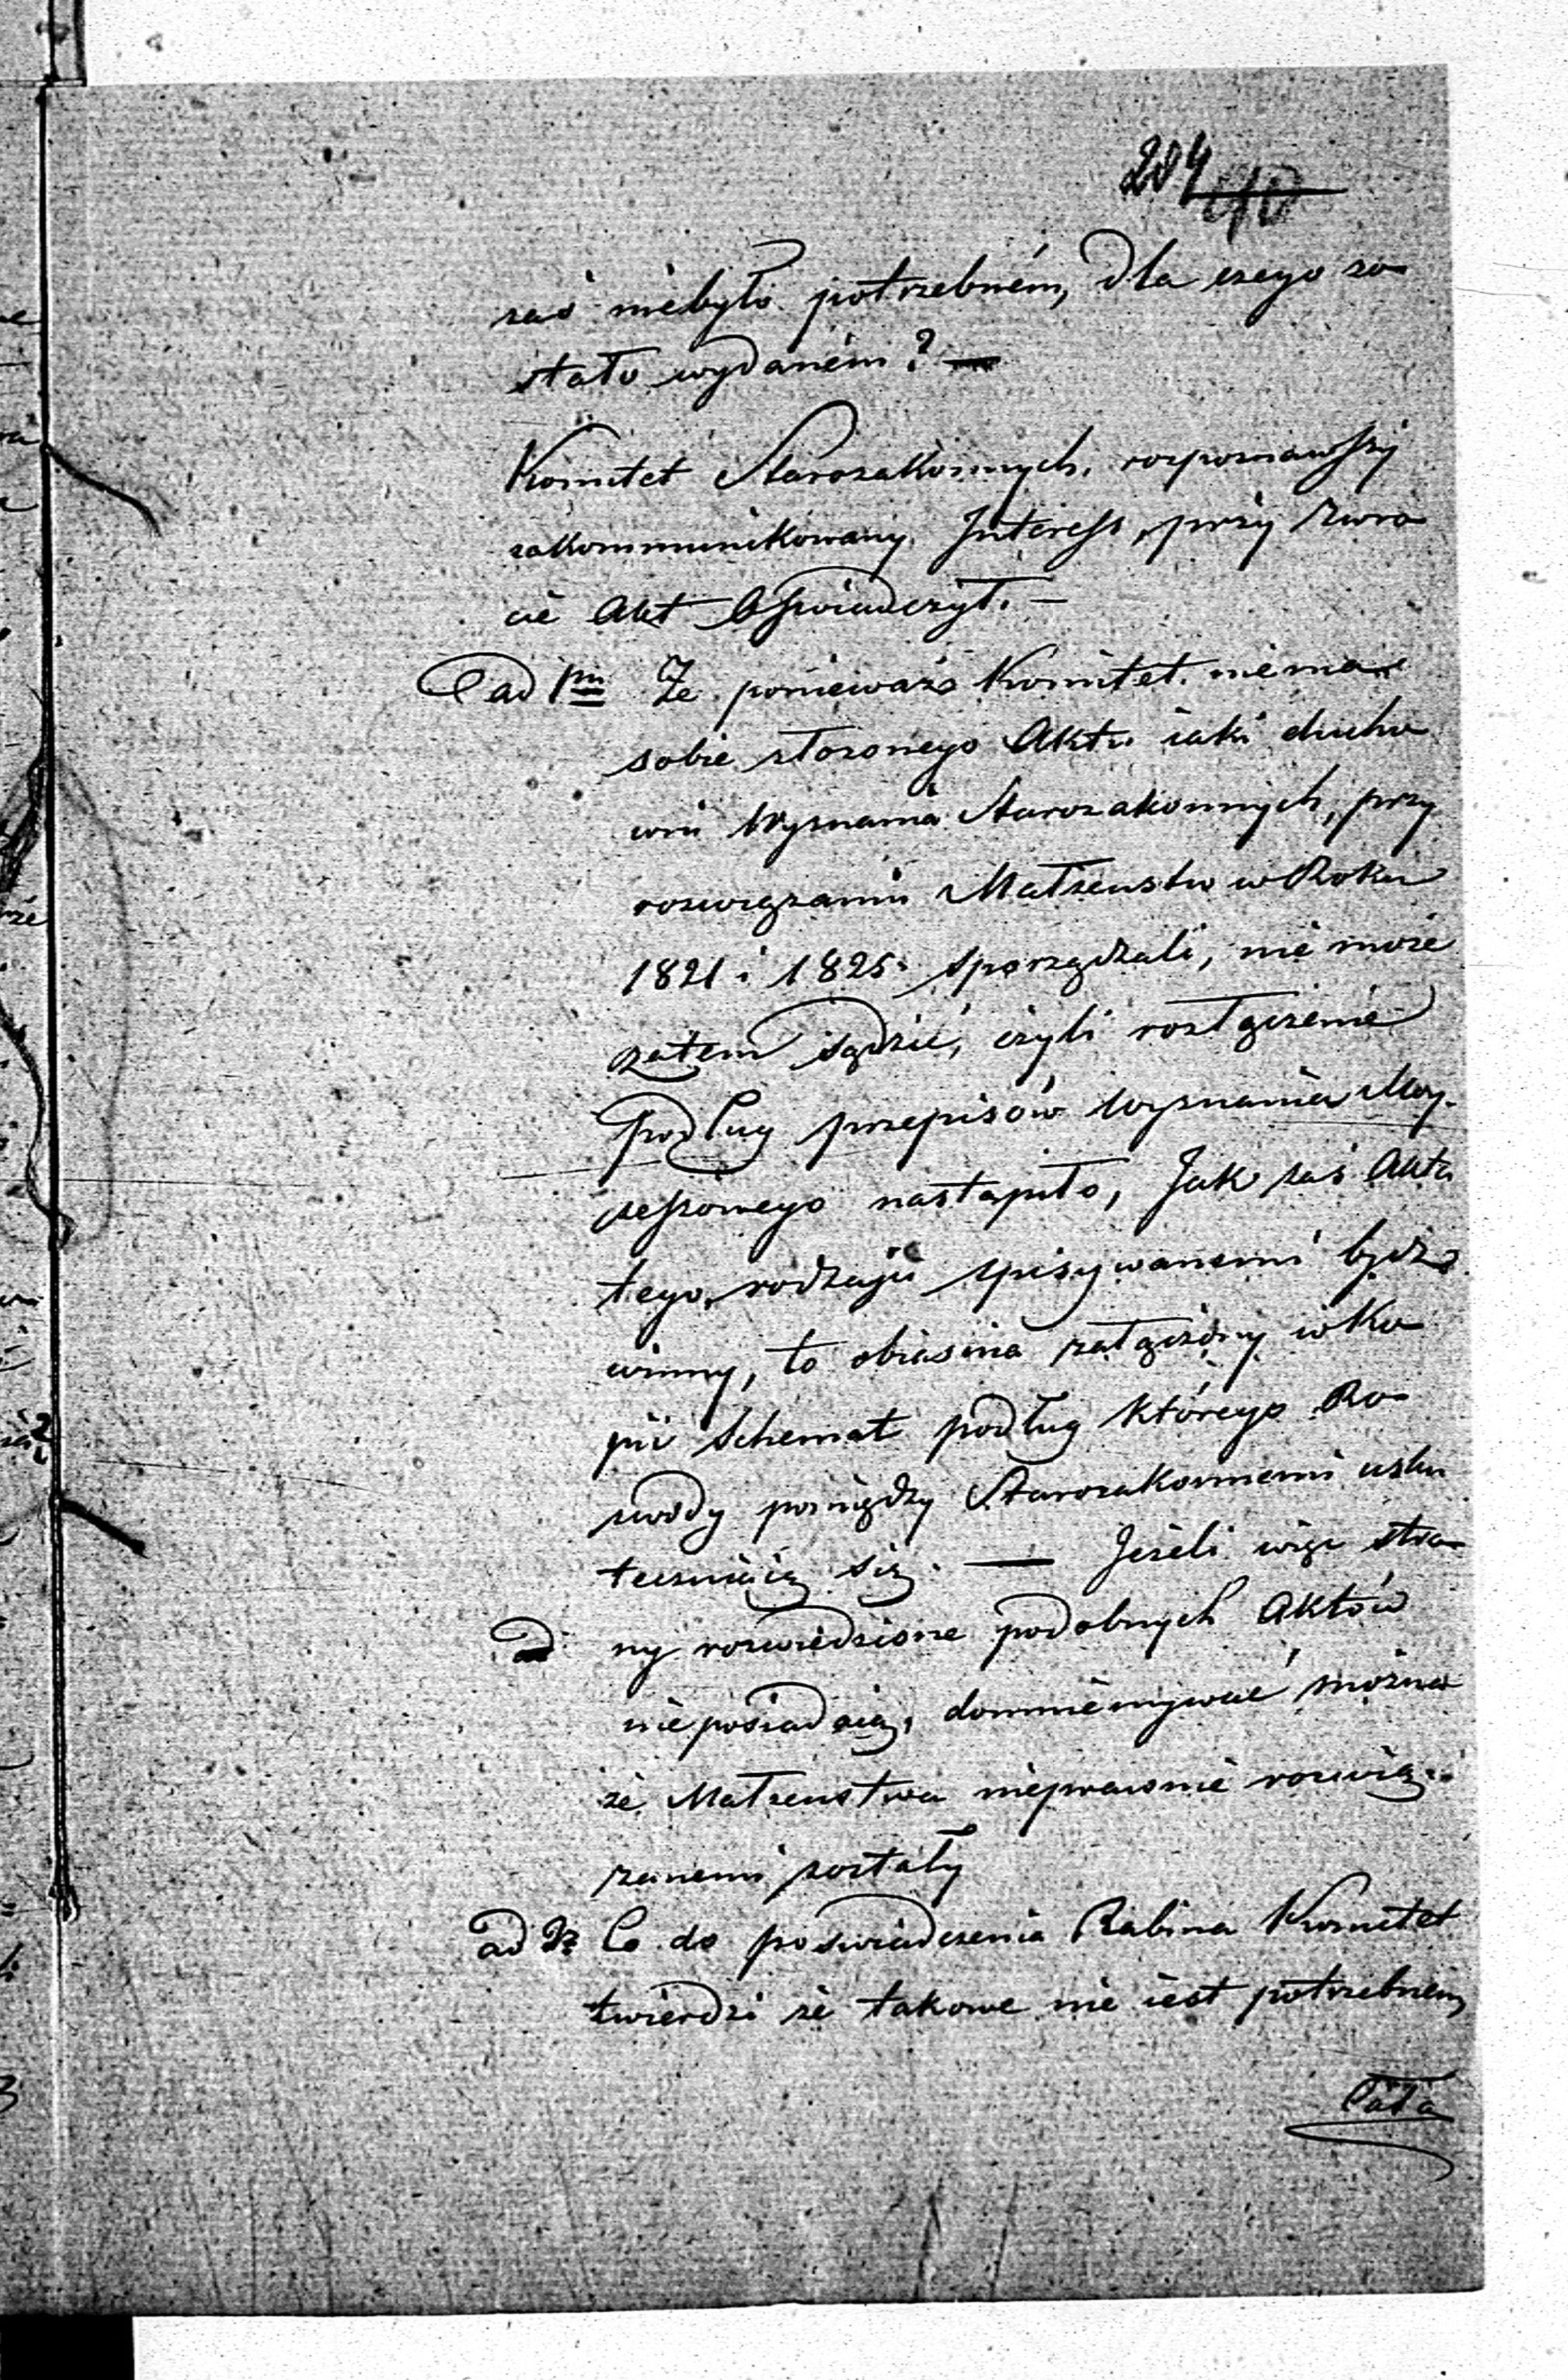 204
zaś niebyło potrzebném, dla czego zo-
stało wydaném? —
Komitet Starozakonnych, rozpoznawszy
zakommunikowany Interess, przy zwro-
cie Akt Oświadczył. —
ad 1m Że ponieważ Komitet niema
sobie złożonego Aktu iaki ducho
wni Wyznania Starozakonnych, przy
rozwiązaniu Małżeństw w Roku
1821 i 1825. sporządzali, nie może
zatem sądzić, czyli rozłączenie
podług przepisów Wyznania Moy-
żeszowego nastąpiło, Jak zaś Akta
tego rodzaju spisywanemi bydź po
winny, to obiasnia załączony w Ko
pii Schemat podług którego Ro-
zwody pomiędzy Starozakonnemi usku
teczniaią się. — Jeżeli więc stro-
ny rozwiedzione podobnych Aktów
nie posiadaią, domniemywać można
że Małżeństwa nieprawnie rozwią-
zanemi zostały
ad 2 Co do poświadczenia Rabina Komitet
twierdzi że takowe nie iest potrzebnem,
Cała